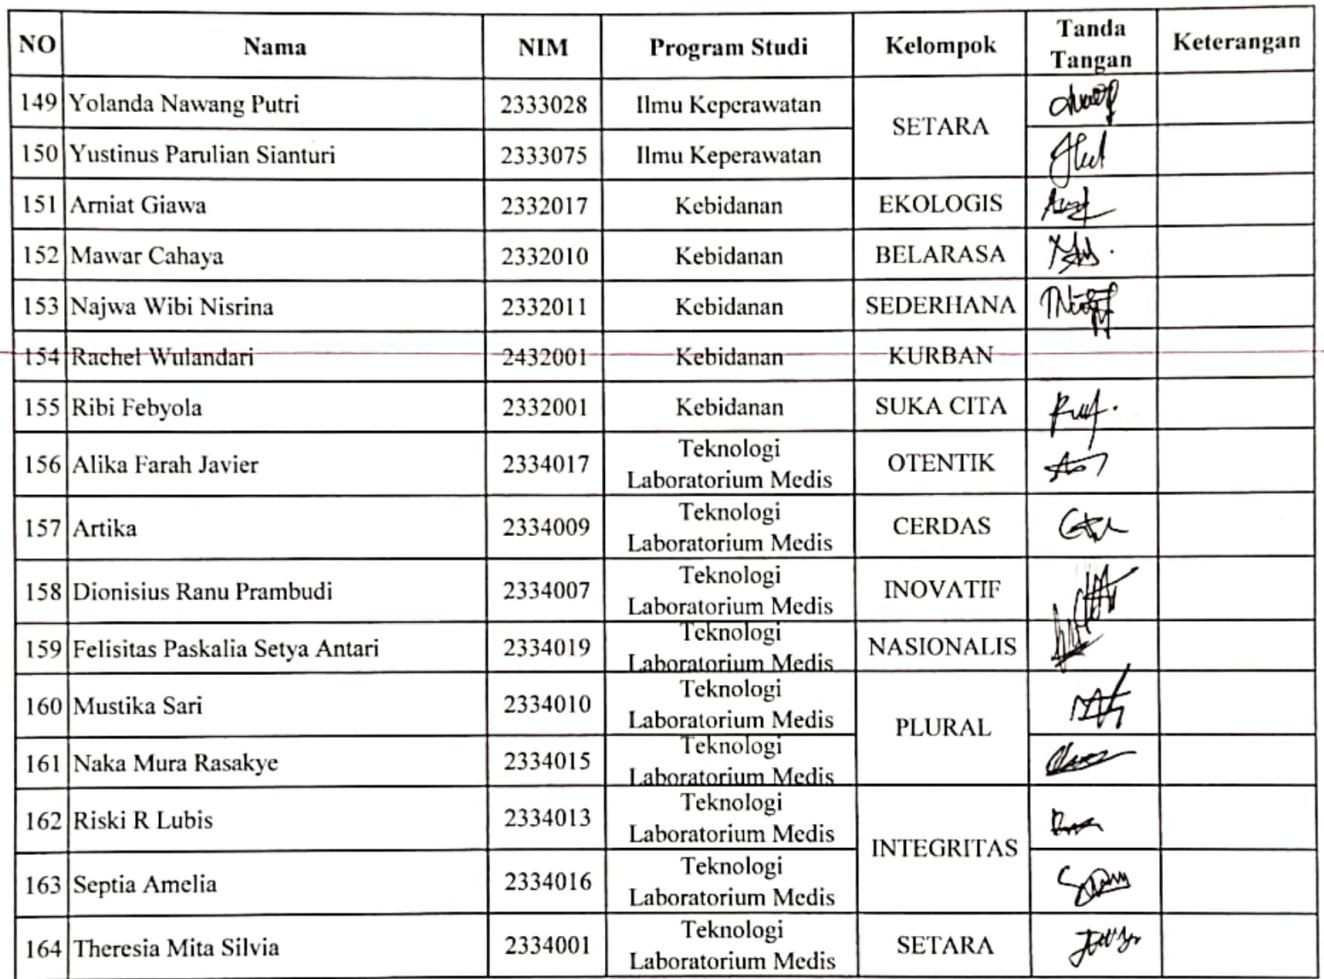 NO Nama NIM Program Studi Kelompok Tanda Tangan Keterangan
149 Yolanda Nawang Putri 2333028 Ilmu Keperawatan SETARA
150 Yustinus Parulian Sianturi 2333075 Ilmu Keperawatan
151 Arniat Giawa 2332017 Kebidanan EKOLOGIS
152 Mawar Cahaya 2332010 Kebidanan BELARASA
153 Najwa Wibi Nisrina 2332011 Kebidanan SEDERHANA
154 Rachel Wulandari 2432001 Kebidanan KURBAN
155 Ribi Febyola 2332001 Kebidanan SUKA CITA
156 Alika Farah Javier 2334017 Teknologi Laboratorium Medis OTENTIK
157 Artika 2334009 Teknologi Laboratorium Medis CERDAS
158 Dionisius Ranu Prambudi 2334007 Teknologi Laboratorium Medis INOVATIF
159 Felisitas Paskalia Setya Antari 2334019 Teknologi Laboratorium Medis NASIONALIS
160 Mustika Sari 2334010 Teknologi Laboratorium Medis PLURAL
161 Naka Mura Rasakye 2334015 Teknologi Laboratorium Medis
162 Riski R Lubis 2334013 Teknologi Laboratorium Medis INTEGRITAS
163 Septia Amelia 2334016 Teknologi Laboratorium Medis
164 Theresia Mita Silvia 2334001 Teknologi Laboratorium Medis SETARA